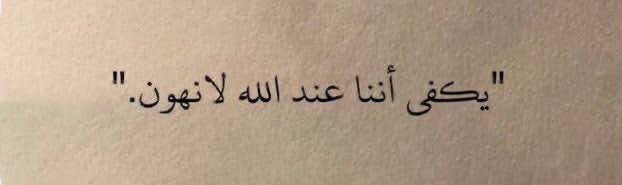 "يكفى أننا عند الله لانهون."